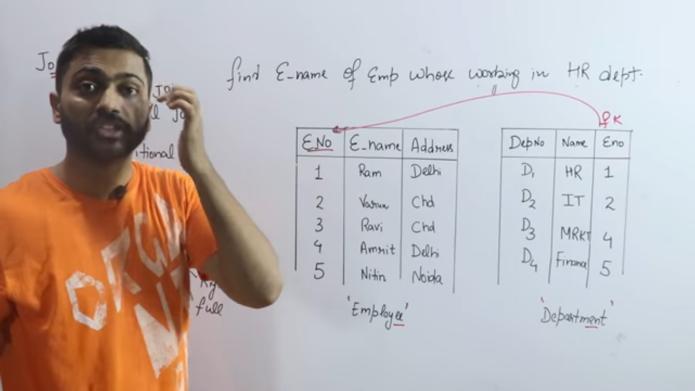 find E-name of Emp whose working in HR dept.
FK
E.No E-name Address
1 Ram Delhi
2 Varun Chd
3 Ravi Chd
4 Amrit Delhi
5 Nitin Noida
'Employee'
DepNo Name Eno
D1 HR 1
D2 IT 2
D3 MRKT 4
D4 Finance 5
'Department'
itional
full